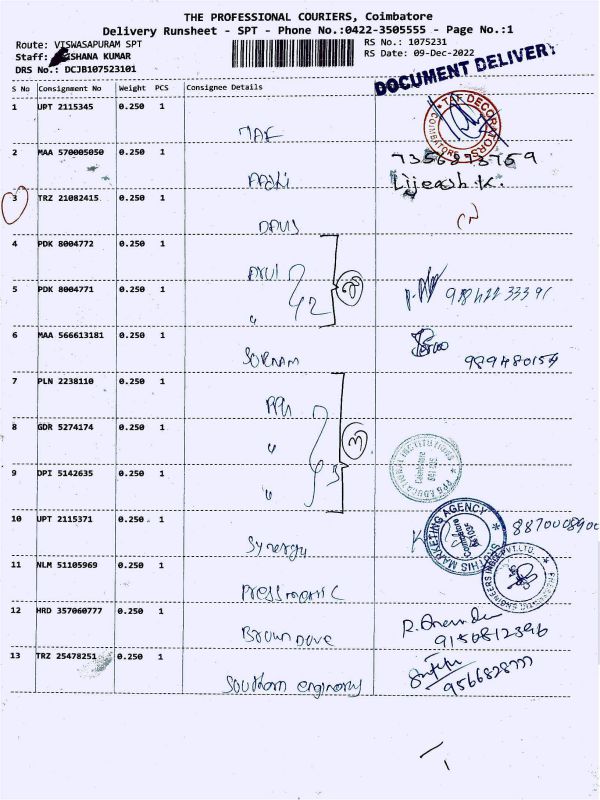 THE PROFESSIONAL COURIERS, Coimbatore
Delivery Runsheet - SPT - Phone No.:0422-3505555 - Page No.:1
Route: VISWASAPURAM SPT
RS No.: 1075231
Staff: ISHANA KUMAR
RS Date: 09-Dec-2022
DRS No.: DCJB107523101
DOCUMENT DELIVERY
S No Consignment No Weight PCS Consignee Details
1 UPT 2115345 0.250 1
TAF
TAF DECORATORS COIMBATORE
2 MAA 570005050 0.250 1
7356873759
Lijeash.K.
3 TRZ 21082415 0.250 1
4 PDK 8004772 0.250 1
Arul
2
5 PDK 8004771 0.250 1
"
6 MAA 566613181 0.250 1
989480154
7 PLN 2238110 0.250 1
8 GDR 5274174 0.250 1
"
PPG EDUCATIONAL INSTITUTIONS
Coimbatore
641 035
9 DPI 5142635 0.250 1
"
3
10 UPT 2115371 0.250 1
Synergy
MARKETING AGENCY
Coimbatore
8870008900
11 NLM 51105969 0.250 1
Pressmatic
ENGINEERS INDIA PVT.LTD.
12 HRD 357060777 0.250 1
Brown Dove
9150812396
13 TRZ 25478251 0.250 1
Southern